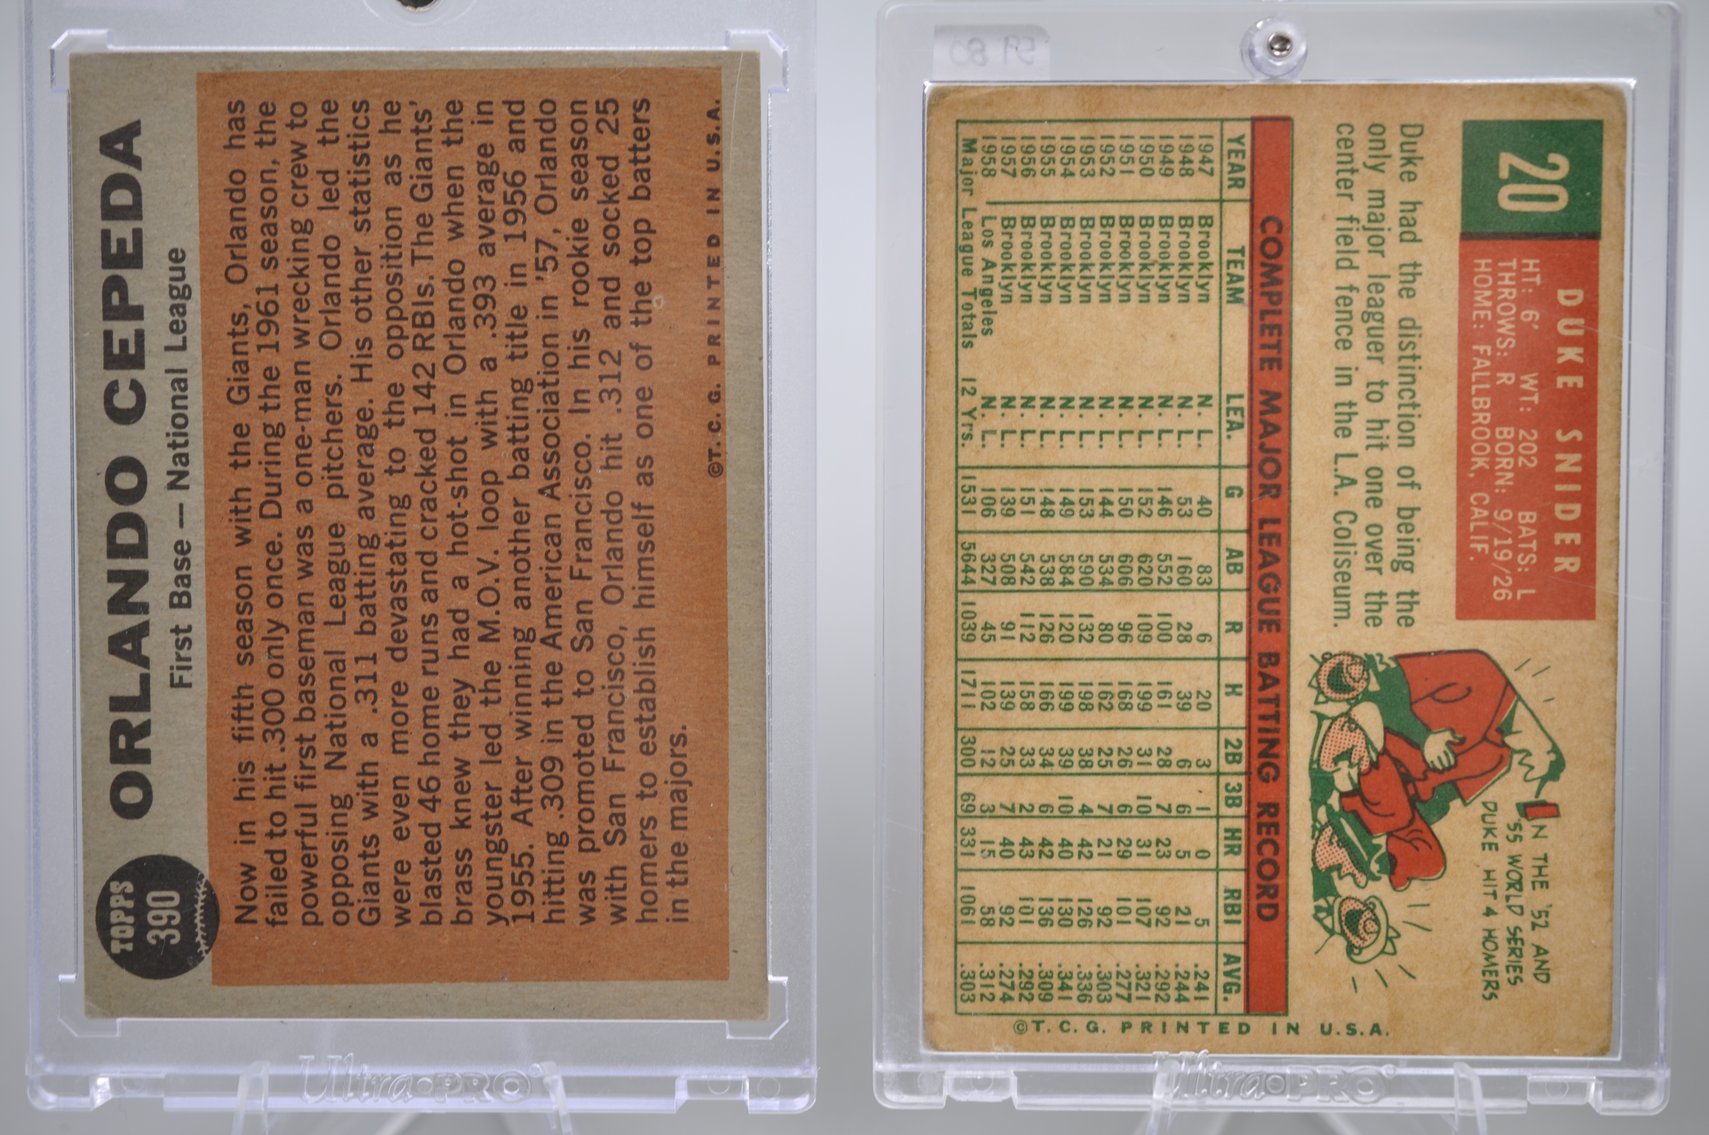 ORLANDO CEPEDA
First Base — National League
TOPPS
390
Now in his fifth season with the Giants, Orlando has
failed to hit .300 only once. During the 1961 season, the
powerful first baseman was a one-man wrecking crew to
opposing National League pitchers. Orlando led the
Giants with a .311 batting average. His other statistics
were even more devastating to the opposition as he
blasted 46 home runs and cracked 142 RBIs. The Giants'
brass knew they had a hot-shot in Orlando when the
youngster led the M.O.V. loop with a .393 average in
1955. After winning another batting title in 1956 and
hitting .309 in the American Association in '57, Orlando
was promoted to San Francisco. In his rookie season
with San Francisco, Orlando hit .312 and socked 25
homers to establish himself as one of the top batters
in the majors.
©T. C. G. PRINTED IN U.S.A.
Ultra•PRO
20
DUKE SNIDER
HT: 6' WT: 202 BATS: L
THROWS: R BORN: 9/19/26
HOME: FALLBROOK, CALIF.
Duke had the distinction of being the
only major leaguer to hit one over the
center field fence in the L.A. Coliseum.
IN THE '52 AND
'55 WORLD SERIES
DUKE HIT 4 HOMERS
COMPLETE MAJOR LEAGUE BATTING RECORD
YEAR TEAM LEA. G AB R H 2B 3B HR RBI AVG.
1947 Brooklyn N. L. 40 83 6 20 3 1 0 5 .241
1948 Brooklyn N. L. 53 160 28 39 6 6 5 21 .244
1949 Brooklyn N. L. 146 552 100 161 28 7 23 92 .292
1950 Brooklyn N. L. 152 620 109 199 31 10 31 107 .321
1951 Brooklyn N. L. 150 606 96 168 26 6 29 101 .277
1952 Brooklyn N. L. 144 534 80 162 25 7 21 92 .303
1953 Brooklyn N. L. 153 590 132 198 38 4 42 126 .336
1954 Brooklyn N. L. 149 584 120 199 39 10 40 130 .341
1955 Brooklyn N. L. 148 538 126 166 34 6 42 136 .309
1956 Brooklyn N. L. 151 542 112 158 33 2 43 101 .292
1957 Brooklyn N. L. 139 508 91 139 25 7 40 92 .274
1958 Los Angeles N. L. 106 327 45 102 12 3 15 58 .312
Major League Totals 12 Yrs. 1531 5644 1039 1711 300 69 331 1061 .303
©T. C. G. PRINTED IN U.S.A.
Ultra•PRO